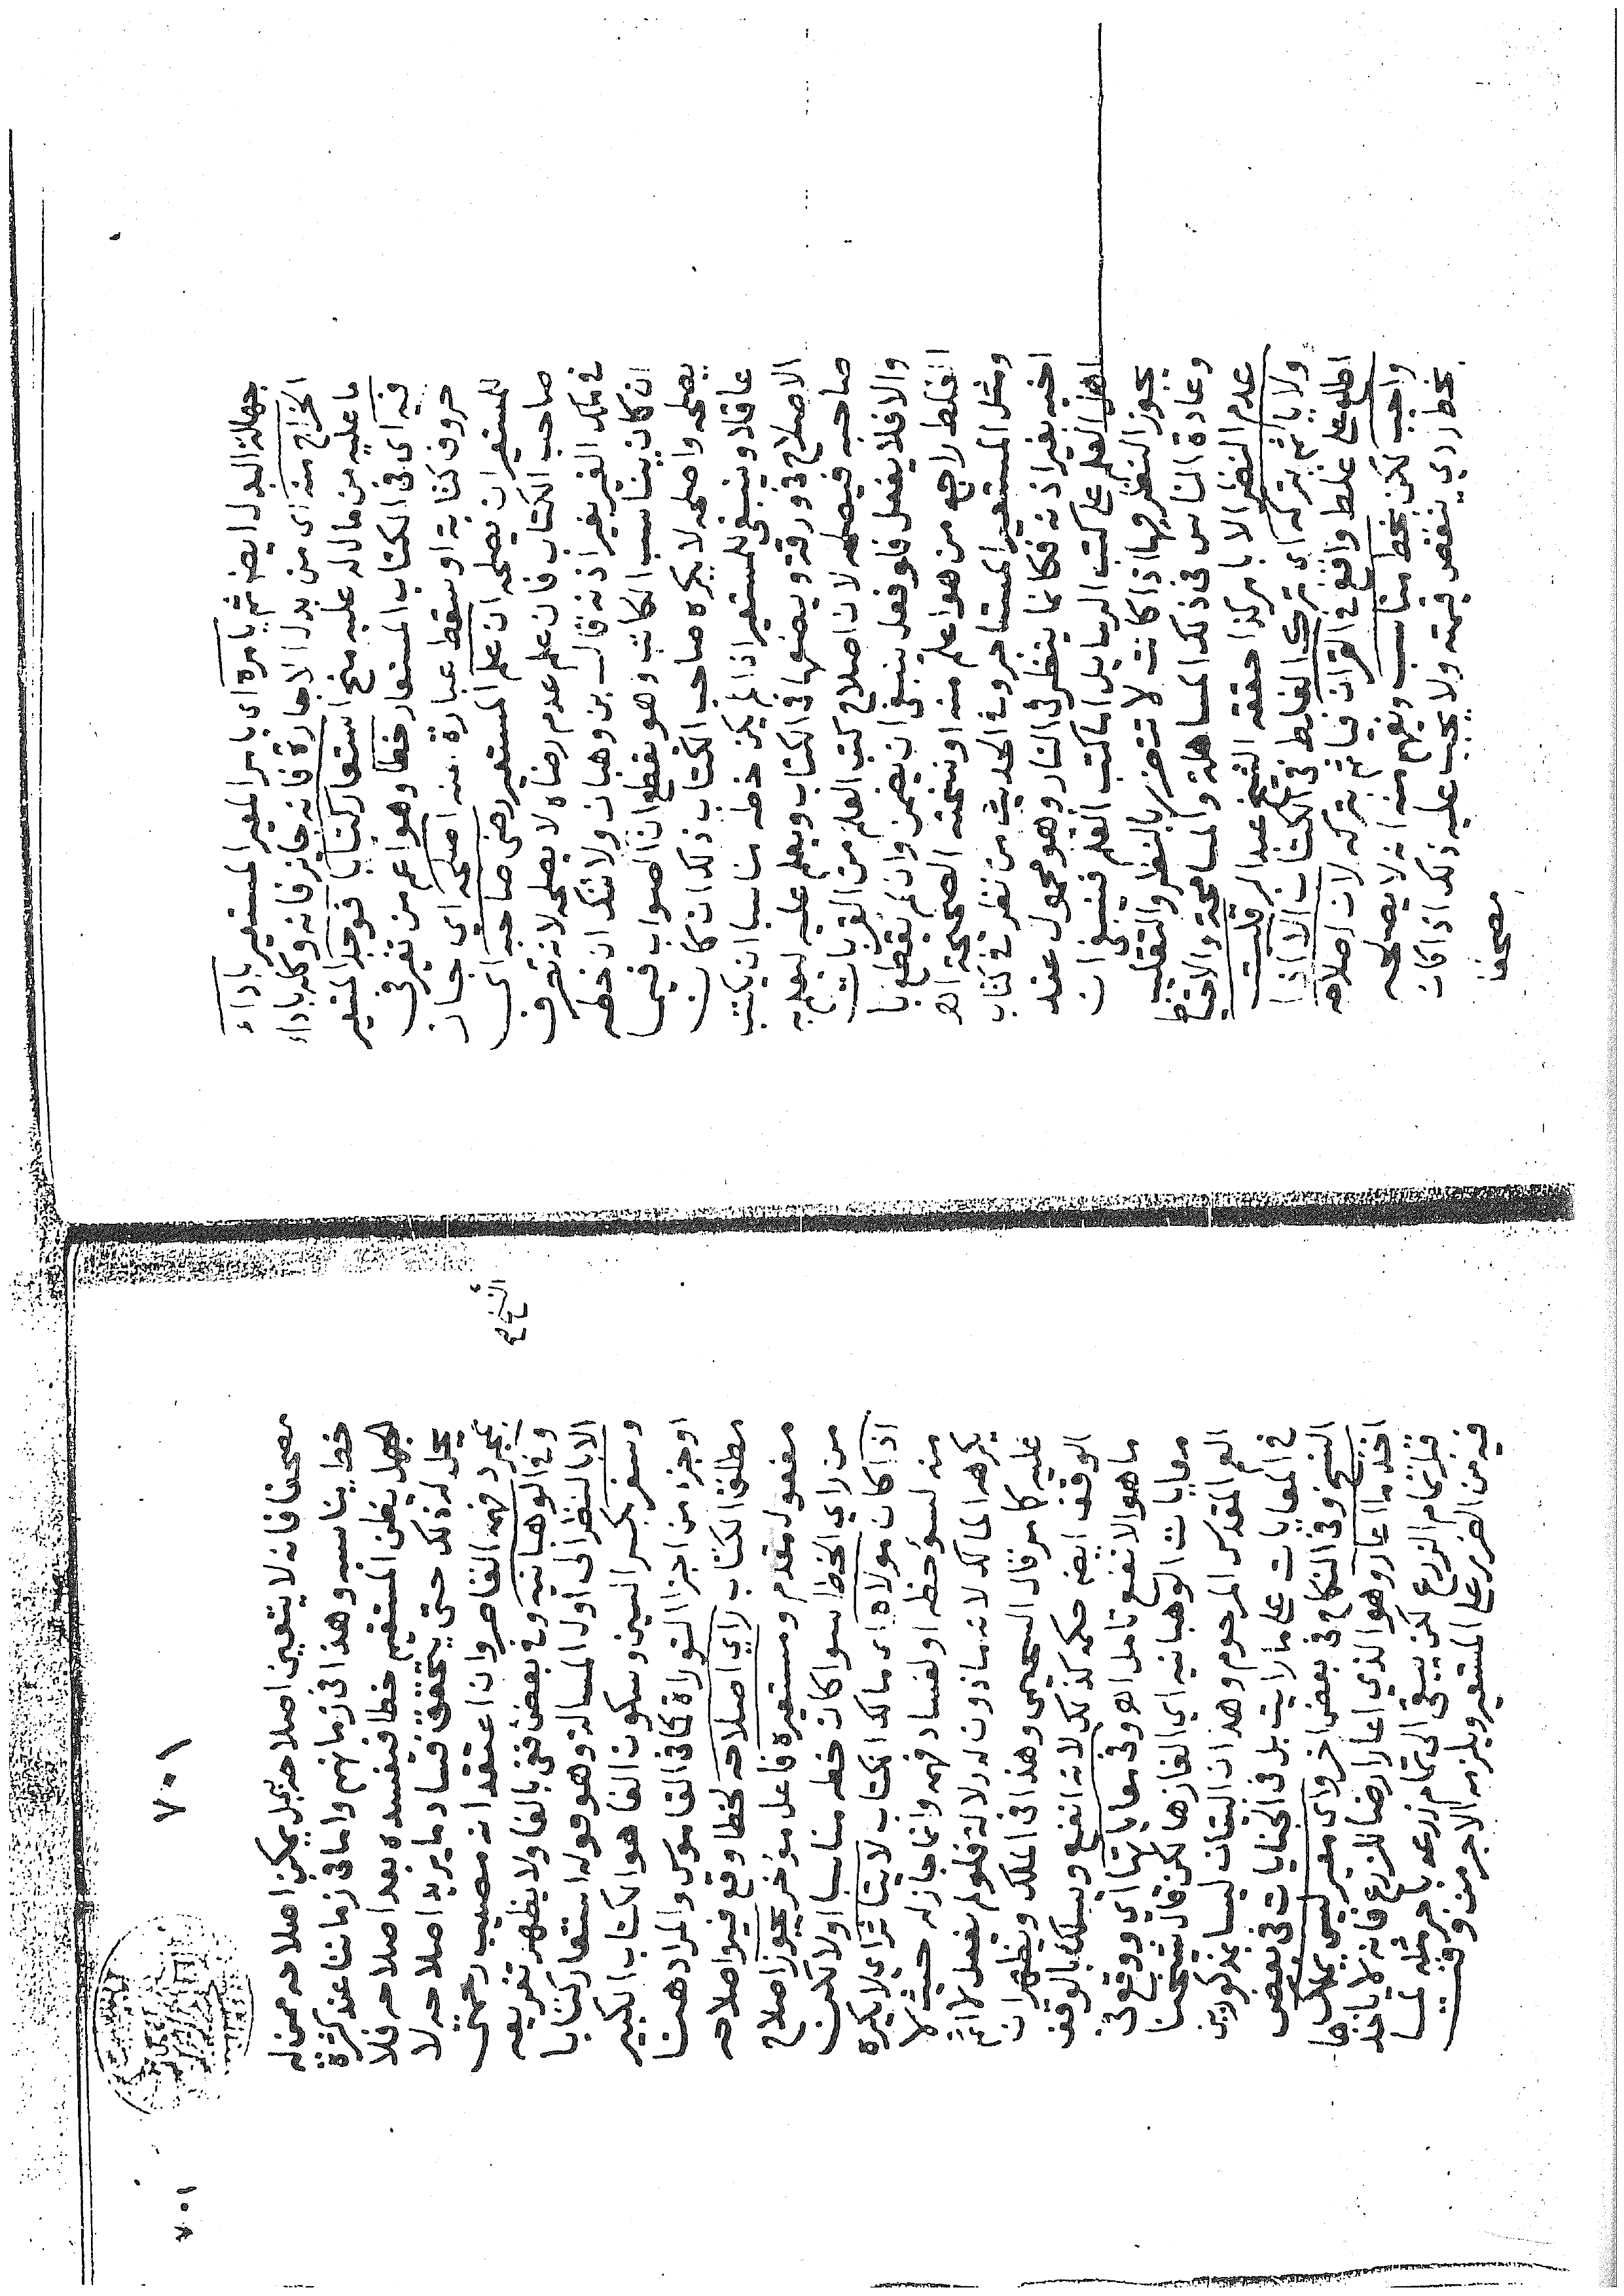 جهالة البدل ايضا ثم يامره اى يامر المعير المستعير باداء
الخراج منه اى من بدل الاجارة فانه جائز فانه وكله باداء
ما عليه من مال له عليه منح استعار كتابا فوجد المستعير
فيه اى فى الكتاب المستعار خطا وهو اعم من تغير فى
حروف كتابة او سقط عبارة منه اصلحه اي جاز
للمستعير ان يصلحه ان علم المستعير رضى صاحبه اى
صاحب الكتاب فان علم عدم رضاه لا يصلحه لانه تصرف
فى ملك الغير بغير اذنه قال بن وهبان ولا شك ان خطه
ان كان يناسب الكاتب وهو يقطع ان الصواب فيما
يصلحه واصلحه لا يكره صاحب الكتاب ذلك ان كان
عاقلا وينبغى للمستعير اذا لم يكن خطه مناسبا ان يكتب
الاصلاح فى ورقة ويضعها فى الكتاب ويعلم عليه ليعلم به
صاحبه فيصلحه لان اصلاح كتب العلم من القربات
والا فلا يفعل فلو فعل ينبغى ان يضمن وان لم يقطع با
الغلط راجع من هو اعلم منه او نسخته الصحيحة اهـ
ومثل المستعير المستاجر وفى الحديث من نظر فى كتاب
اخيه بغير اذنه فكانما ينظر فى النار وهو محمول عند
اهل العلم على كتب الرسايل اما كتب العلم فينبغى ان
يجوز النظر فيها اذا كانت لا تتضرر بالنظر والتقليب
وعادة الناس فى ذلك المساهلة والمسامحة والاحتياط
عدم النظر الا بامر كذا حققه الشيخ عبد البر قلت
ولا ياثم بتركه اى بترك الغلط فى الكتاب الا اذا
اطلع على غلط واقع فى القران فياثم بتركه لان اصلاحه
واجب لكن بخط مناسب ويفهم منه انه لا يصلحه
بخط ردي ينقص قيمته ولا يجب عليه ذلك اذا كان
مصحفا
٧٠١
٧٠١
مصحفا فانه لا يتعين اصلاحه بل يمكن اصلاحه ممن له
خط يناسبه وهذا فى زمانهم واما فى زماننا عند كثرة
الجهل يظن المستقيم خطا فيفسده بعد اصلاحه فلا
يحل له ذلك حتى يتحقق فساد ما يريد اصلاحه لا
بمجرد فهمه القاصر وان اعتقد انه مصيب رحمتى
وفى الوهبانيه وفى بعض نسخ بالفا ولا يظهر تفريعه
الا بالنظر الى اول المسالة وهو قوله استعار كتابا
وسفر بكسر السين وسكون الفا هو الكتاب الكبير
اوجزء من اجزا التوراة كما فى القاموس والمراد هنا
مطلق الكتاب راي اصلاحه لخطا وقع فيه واصلاحه
مفعول مقدم ومستعيره فاعل مؤخر يجوز اصلاح
من راي الخط سوا كان خطه مناسبا اولا لكن
اذا كان مولاه اى مالك الكتاب لا يتاثر اي لا يكره
منه لسوء خطه او لفساد فهمه وانما جاز له حيث لا
يكرهه المالك لانه ماذون له دلالة فلو لم يفعل لا اثم
عليه كما مر قال السحيمى وهذا فى الملك ويظهر ان
الوقف ايضا حكمه كذلك لانه انفع ويسلك بالوقف
ما هو الانفع تامل اهـ وفى معاياتها اي ووقع فى
معايات الوهبانيه اي الغازها لكن قال شيخنا
العم المقدس المرحوم وهذان البيتان ليسا بمذكورين
فى المعايات على ما رايت بل فى الجنايات فى بعض
النسخ وفى النكاح فى بعض اخر واى معير ليس يملك
اخذ ما اعار وهو الذي اعار ارضا للزرع فانه لا ياخذ
قبل تمام الزرع لكن يبقى الى تمام زرعه باجر مثله لما
فيه من الضرر على المستعير ويلزمه الاجر من وقت